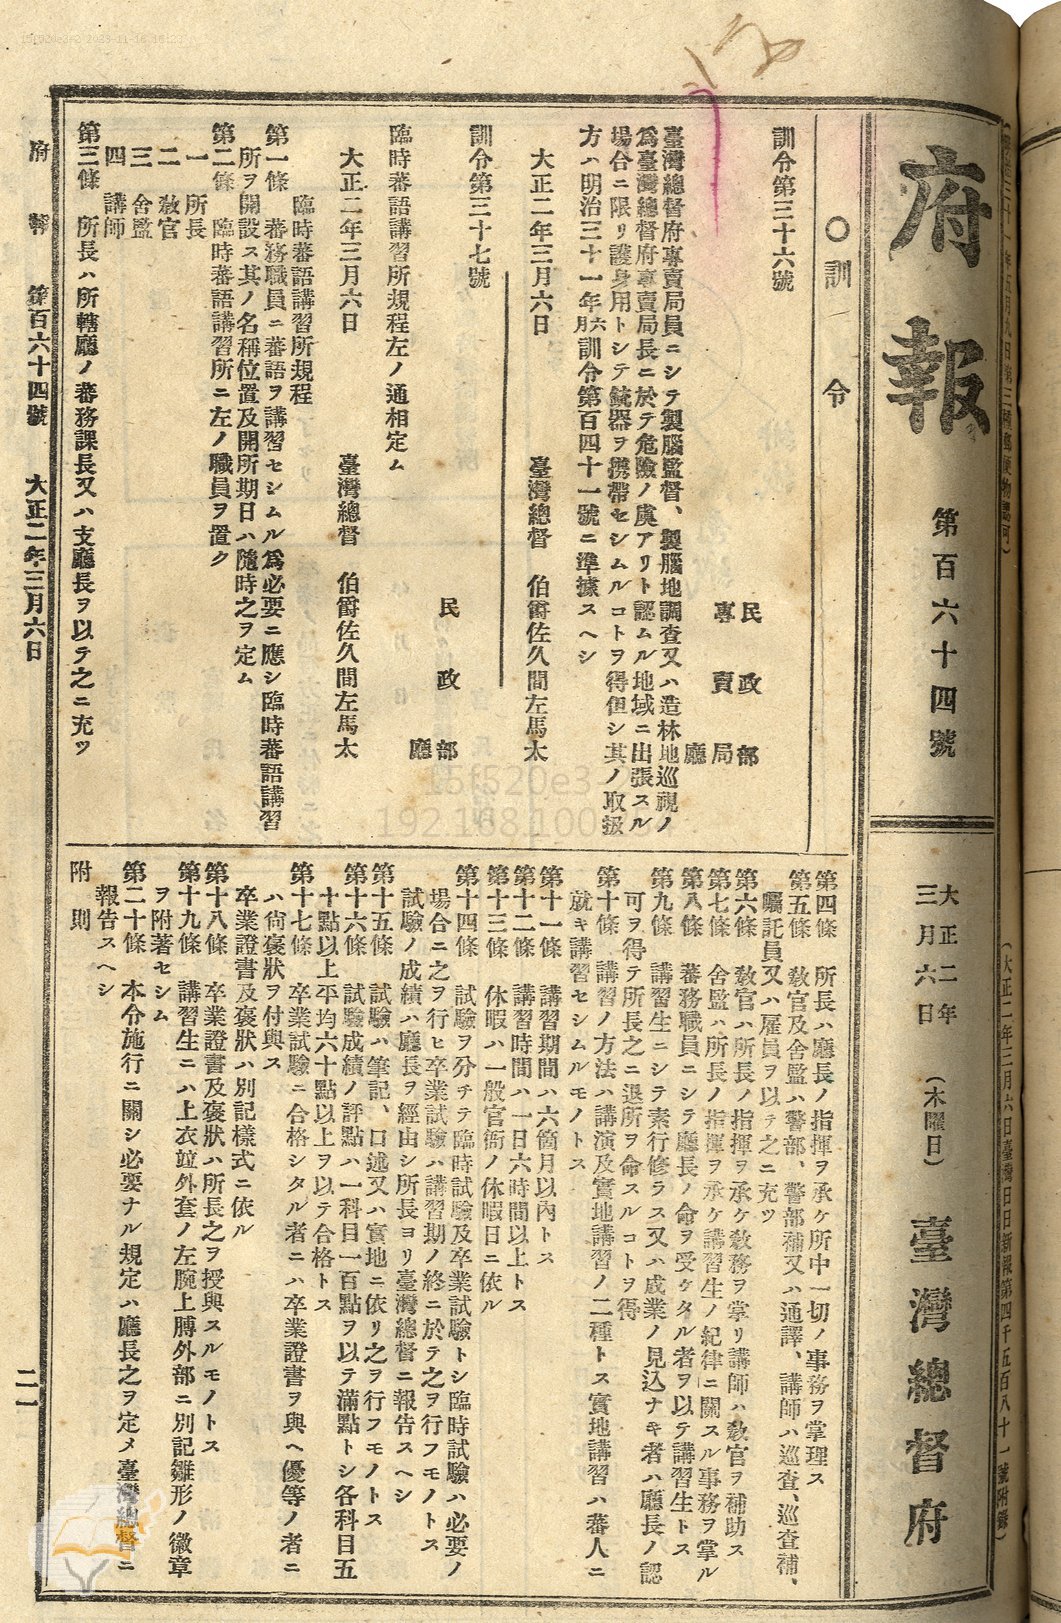 府報
第百六十四號
大正二年
三月六日
（木曜日）
臺灣總督府
（大正二年三月六日臺灣日日新報第四千五百八十一號附錄）
○訓令
訓令第三十六號
民政部
專賣局
廳
臺灣總督府專賣局員ニシテ製腦監督、製腦地調查又ハ造林地巡視ノ
爲臺灣總督府專賣局長ニ於テ危險ノ虞アリト認ムル地域ニ出張スル
場合ニ限リ護身用トシテ銃器ヲ攜帶セシムルコトヲ得但シ其ノ取扱
方ハ明治三十一年六月訓令第百四十一號ニ準據スヘシ
大正二年三月六日
臺灣總督　伯爵佐久間左馬太
訓令第三十七號
民政部
廳
臨時蕃語講習所規程左ノ通相定ム
大正二年三月六日
臺灣總督　伯爵佐久間左馬太
臨時蕃語講習所規程
第一條　蕃務職員ニ蕃語ヲ講習セシムル爲必要ニ應シ臨時蕃語講習
所ヲ開設ス其ノ名稱位置及開所期日ハ隨時之ヲ定ム
第二條　臨時蕃語講習所ニ左ノ職員ヲ置ク
一　所長
二　敎官
三　舍監
四　講師
第三條　所長ハ所轄廳ノ蕃務課長又ハ支廳長ヲ以テ之ニ充ツ
第四條　所長ハ廳長ノ指揮ヲ承ケ所中一切ノ事務ヲ掌理ス
第五條　敎官及舍監ハ警部、警部補又ハ通譯、講師ハ巡查、巡查補、
囑託員又ハ雇員ヲ以テ之ニ充ツ
第六條　敎官ハ所長ノ指揮ヲ承ケ敎務ヲ掌リ講師ハ敎官ヲ補助ス
第七條　舍監ハ所長ノ指揮ヲ承ケ講習生ノ紀律ニ關スル事務ヲ掌ル
第八條　蕃務職員ニシテ廳長ノ命ヲ受ケタル者ヲ以テ講習生トス
第九條　講習生ニシテ素行修ラス又ハ成業ノ見込ナキ者ハ廳長ノ認
可ヲ得テ所長之ニ退所ヲ命スルコトヲ得
第十條　講習ノ方法ハ講演及實地講習ノ二種トス實地講習ハ蕃人ニ
就キ講習セシムルモノトス
第十一條　講習期間ハ六箇月以內トス
第十二條　講習時間ハ一日六時間以上トス
第十三條　休暇ハ一般官衙ノ休暇日ニ依ル
第十四條　試驗ヲ分チテ臨時試驗及卒業試驗トシ臨時試驗ハ必要ノ
場合ニ之ヲ行ヒ卒業試驗ハ講習期ノ終ニ於テ之ヲ行フモノトス
試驗ノ成績ハ廳長ヲ經由シ所長ヨリ臺灣總督ニ報告スヘシ
第十五條　試驗ハ筆記、口述又ハ實地ニ依リ之ヲ行フモノトス
第十六條　試驗成績ノ評點ハ一科目一百點ヲ以テ滿點トシ各科目五
十點以上平均六十點以上ヲ以テ合格トス
第十七條　卒業試驗ニ合格シタル者ニハ卒業證書ヲ與ヘ優等ノ者ニ
ハ尙褒狀ヲ付與ス
卒業證書及褒狀ハ別記樣式ニ依ル
第十八條　卒業證書及褒狀ハ所長之ヲ授與スルモノトス
第十九條　講習生ニハ上衣竝外套ノ左腕上膊外部ニ別記雛形ノ徽章
ヲ附著セシム
第二十條　本令施行ニ關シ必要ナル規定ハ廳長之ヲ定メ臺灣總督ニ
報告スヘシ
附則
府報　第百六十四號　大正二年三月六日
二一
15f520e3-2
192.168.100